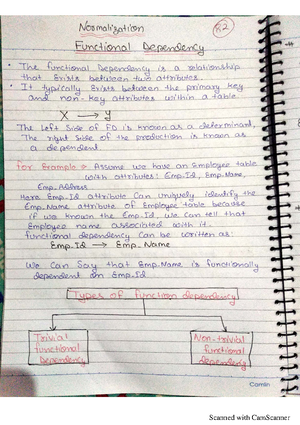 Normalization
R2
Functional Dependency
• The functional Dependency is a relationship
that Exists between two attributes.
• It typically Exists between the primary key
and non-key attributes within a table.
X → y
The Left Side of FD is known as a determinant,
The right side of the production is known as
a dependent.
for Example → Assume we have an Employee table
with attributes: Emp_Id, Emp_Name,
Emp_Address
Here Emp_Id attribute Can Uniquely identify the
Emp_Name attribute of Employee table because
if we known the Emp_Id, we Can tell that
Employee name associated with it.
functional dependency Can be written as:
Emp_Id → Emp_Name
We Can Say that Emp_Name is functionally
dependent on Emp_Id
Types of function dependency
Trivial Non-trivial
functional functional
Dependency dependency
Camlin
Scanned with CamScanner